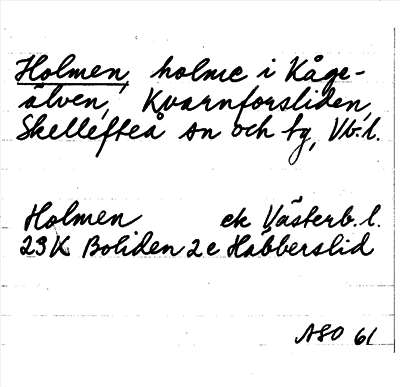 Holmen, holme i Kåge-
älven, Kvarnforsliden,
Skellefteå sn och tg, Vb.l.
Holmen ek Västerb.l.
23K Boliden 2e Habberslid
ASO 61